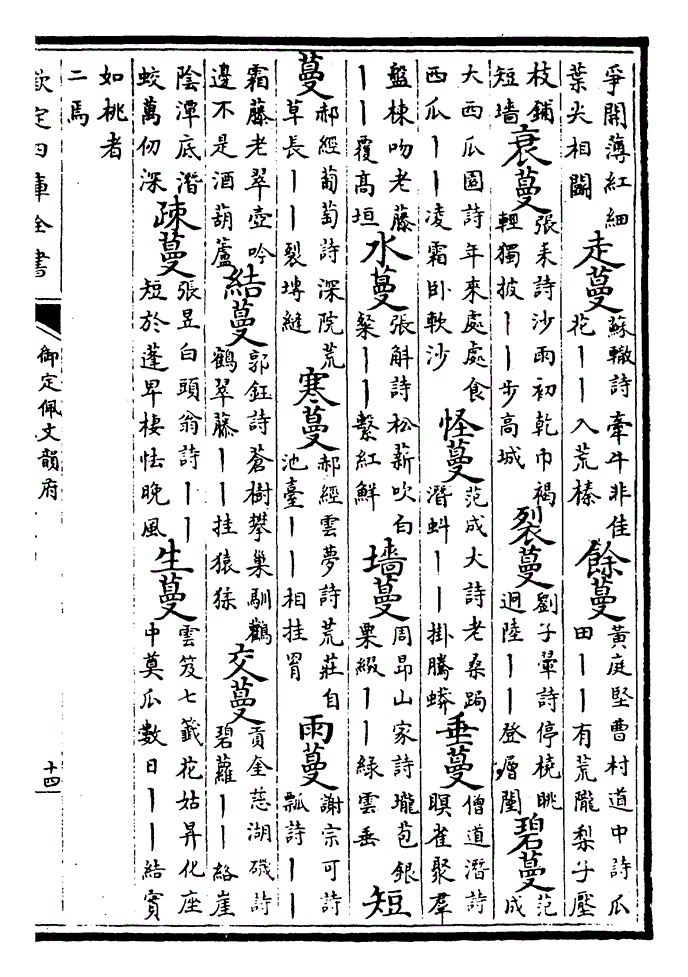 爭開薄紅細葉尖相鬭 走蔓 蘇轍詩牽牛非佳花丨丨入荒榛 餘蔓 黃庭堅曹村道中詩瓜田丨丨有荒隴梨子壓
枝鋪短墻 衰蔓 張耒詩沙雨初乾巾褐輕獨披丨丨步高城 裂蔓 劉子翬詩停橈眺迥陸丨丨登層闉 碧蔓 范成
大西瓜園詩年來處處食西瓜丨丨凌霜卧軟沙 怪蔓 范成大詩老桑跼潛虯丨丨掛騰蟒 垂蔓 僧道潛詩瞑雀聚羣
盤棟吻老藤丨丨覆高垣 水蔓 張斛詩松薪吹白粲丨丨繫紅鮮 墻蔓 周昂山家詩壠苞銀粟綴丨丨綠雲垂 短
蔓 郝經葡萄詩深院荒草長丨丨裂塼縫 寒蔓 郝經雲夢詩荒莊自池臺丨丨相挂罥 雨蔓 謝宗可詩瓢詩丨丨
霜藤老翠壺吟邊不是酒葫蘆 結蔓 郭鈺詩蒼樹攀巢馴鸛鶴翠藤丨丨挂猿猱 交蔓 貢金慈湖磯詩碧蘿丨丨絡崖
陰潭底潛蛟萬仞深 疎蔓 張昱白頭翁詩丨丨短於蓬早棲怯晚風 生蔓 雲笈七籤花姑昇化座中莫瓜數日丨丨結實
如桃者二焉
欽定四庫全書 御定佩文韻府 十四